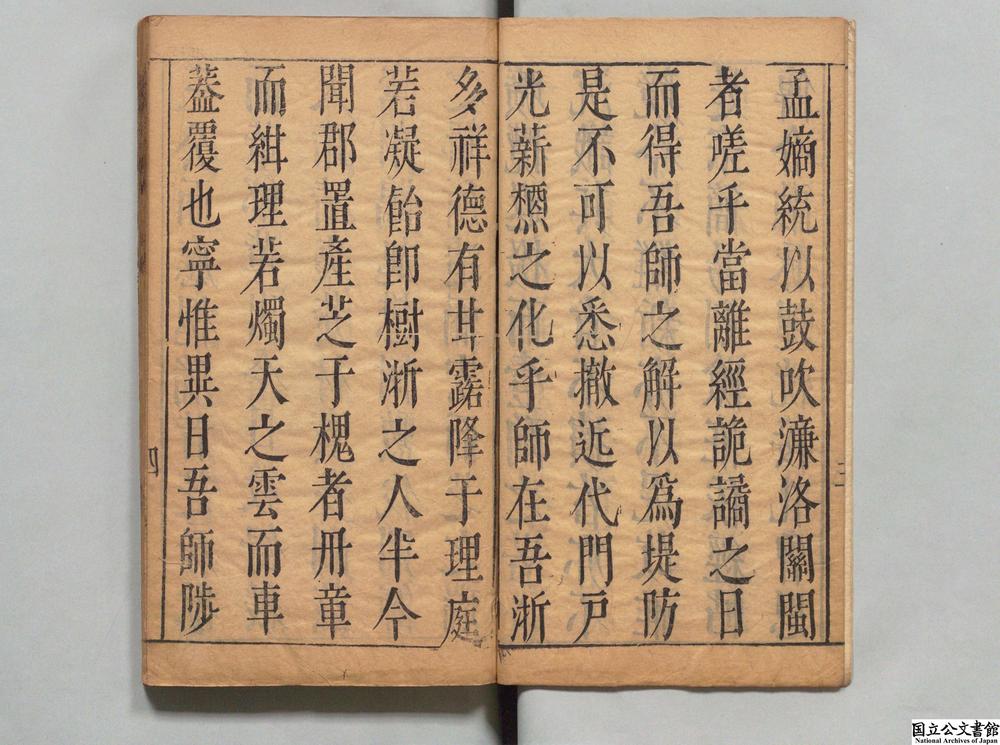 孟嫡統以鼓吹濂洛關閩
者嗟乎當離經詭譎之日
而得吾師之解以爲堤防
是不可以悉撤近代門戸
光薪槱之化乎師在吾浙
多祥德有甘露降于理庭
若凝飴卽樹浙之人半今
聞郡置產芝于槐者冊章
而紺理若燭天之雲而車
葢覆也寧惟異日吾師陟
三
四
国立公文書館
National Archives of Japan